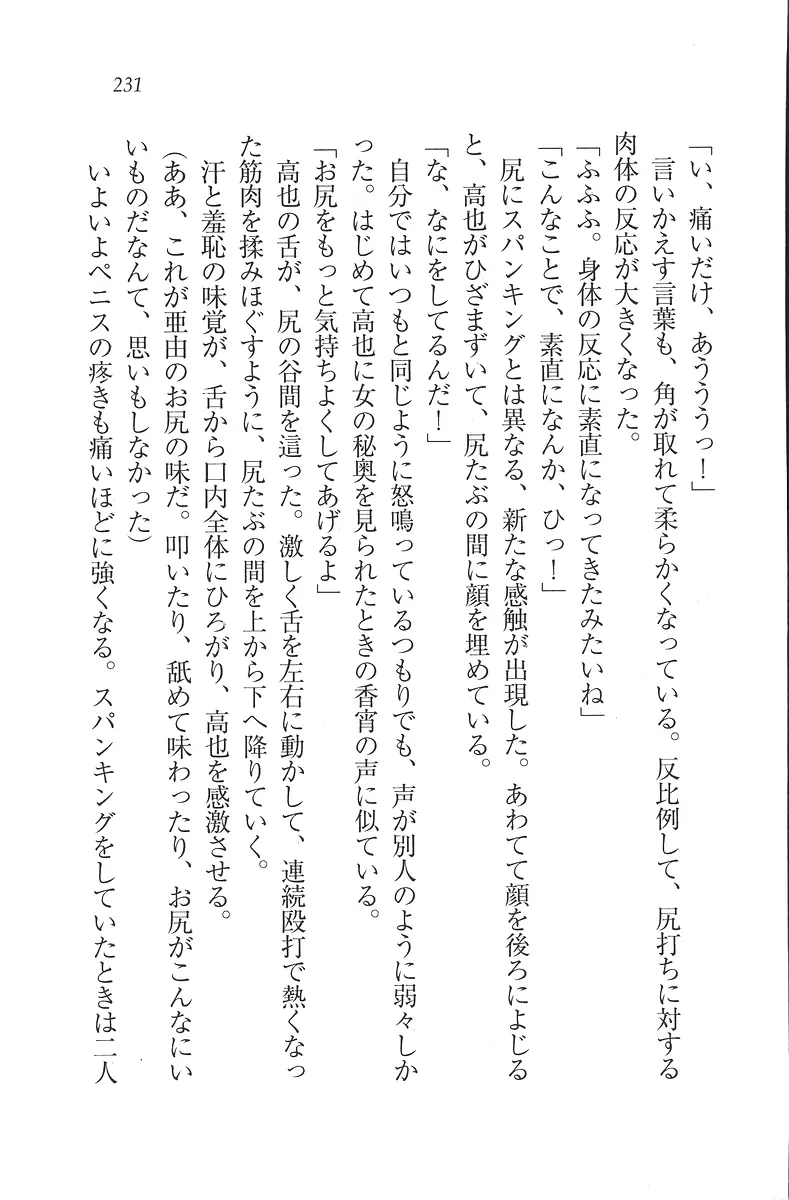 231
「い、痛いだけ、あううっ！」
言いかえす言葉も、角が取れて柔らかくなっている。反比例して、尻打ちに対する
肉体の反応が大きくなった。
「ふふふ。身体の反応に素直になってきたみたいね」
「こんなことで、素直になんか、ひっ！」
尻にスパンキングとは異なる、新たな感触が出現した。あわてて顔を後ろによじる
と、高也がひざまずいて、尻たぶの間に顔を埋めている。
「な、なにをしてるんだ！」
自分ではいつもと同じように怒鳴っているつもりでも、声が別人のように弱々しか
った。はじめて高也に女の秘奥を見られたときの香宵の声に似ている。
「お尻をもっと気持ちよくしてあげるよ」
高也の舌が、尻の谷間を這った。激しく舌を左右に動かして、連続殴打で熱くなっ
た筋肉を揉みほぐすように、尻たぶの間を上から下へ降りていく。
汗と羞恥の味覚が、舌から口内全体にひろがり、高也を感激させる。
（ああ、これが亜由のお尻の味だ。叩いたり、舐めて味わったり、お尻がこんなにい
いものだなんて、思いもしなかった）
いよいよペニスの疼きも痛いほどに強くなる。スパンキングをしていたときは二人